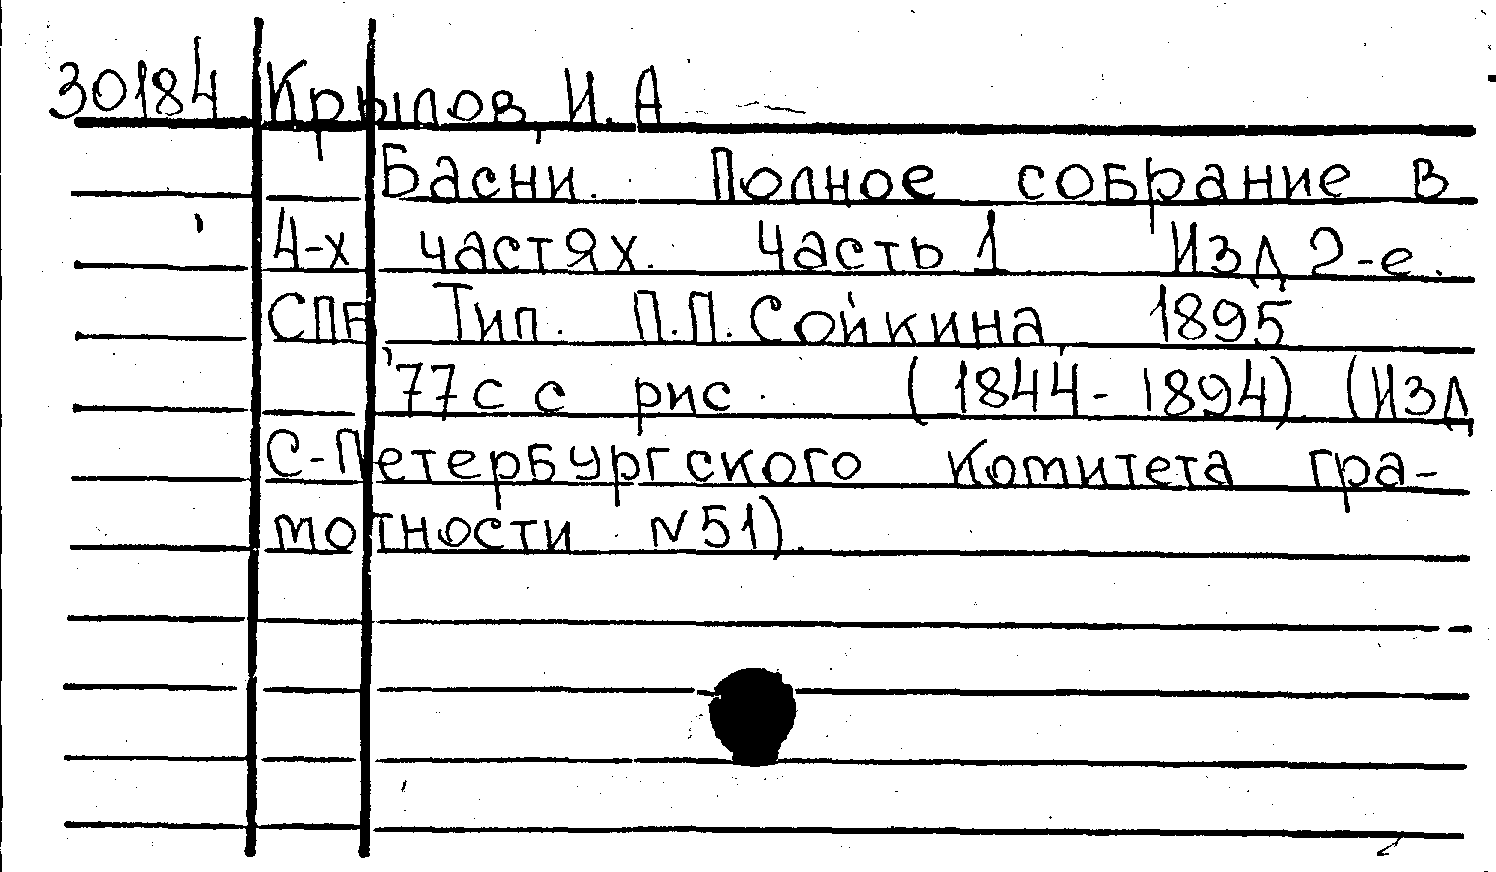 30184 Крылов, И. А
Басни. Полное собрание в
4-х частях. Часть 1 Изд 2-е.
СПБ Тип. П.П. Сойкина, 1895
77 с с рис. (1844-1894) (Изд
С-Петербургского Комитета гра-
мотности N51).